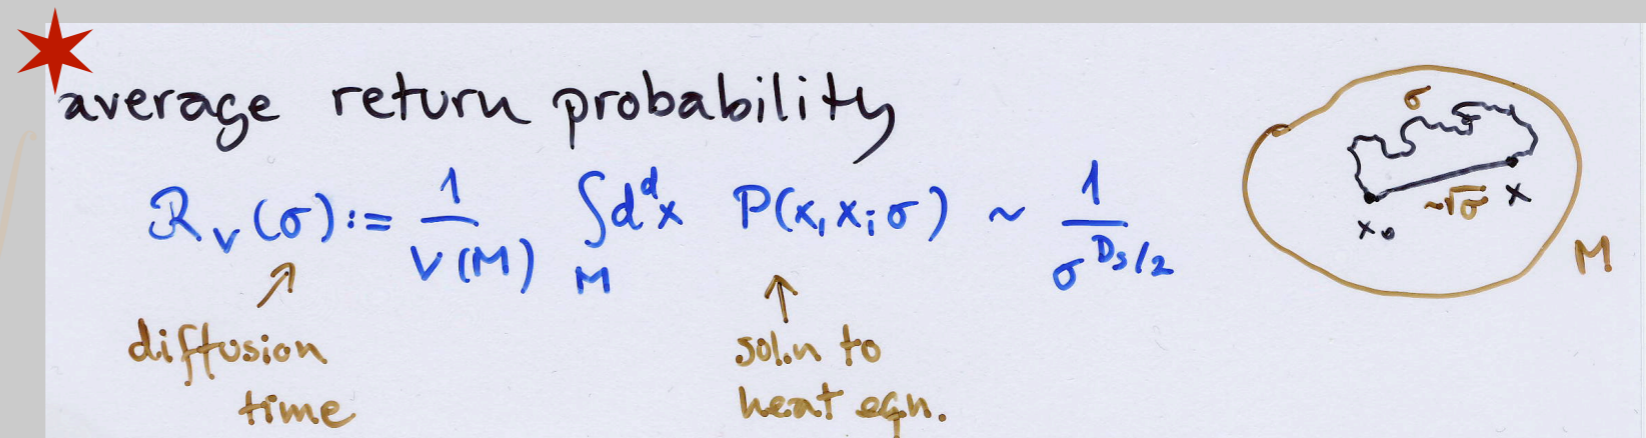 average return probability
R_V(σ) := 1/V(M) ∫_M d^d x P(x, x; σ) ~ 1/σ^{D_S/2}
diffusion
time
sol.n to
heat eqn.
σ
~√σ
x
x₀
M